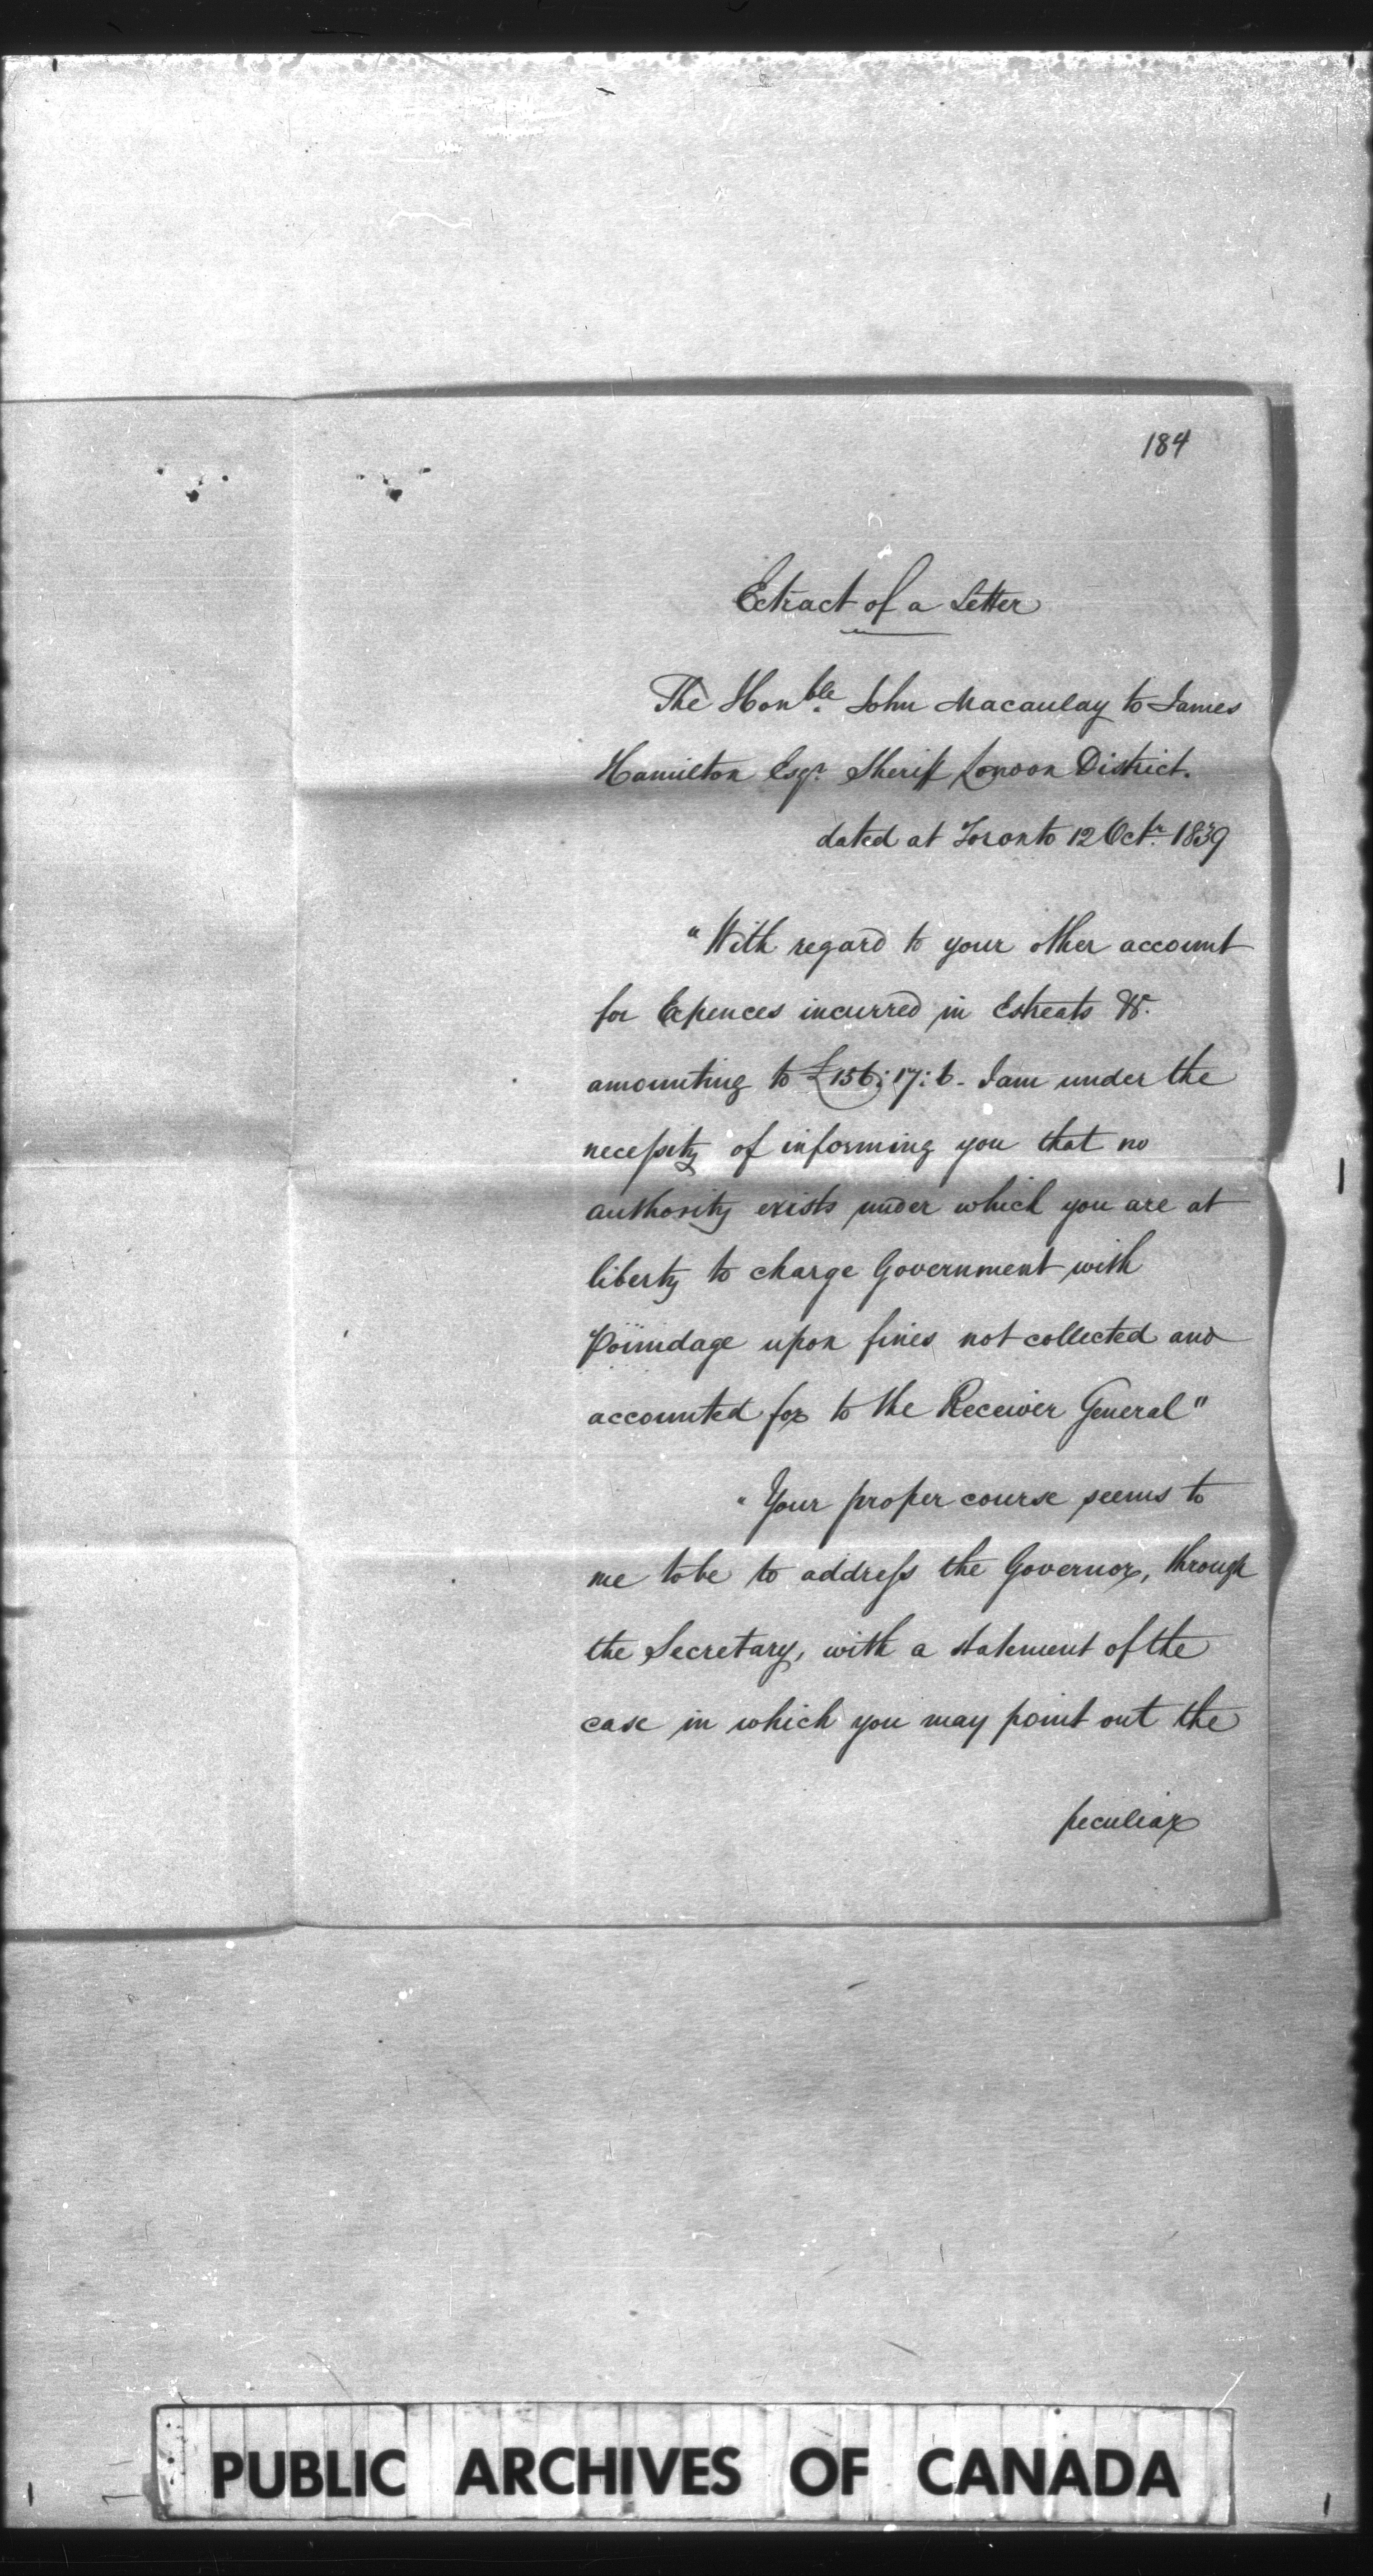 184
Extract of a Letter
The Honble. John Macaulay to James
Hamilton Esqr. Sheriff London District.
dated at Toronto 12 Octr. 1839
"With regard to your other account
for Expences incurred in Estreats &c.
amounting to £156:17:6. I am under the
necessity of informing you that no
authority exists under which you are at
liberty to charge Government with
Poundage upon fines not collected and
accounted for to the Receiver General"
"Your proper course seems to
me to be to address the Governor, through
the Secretary, with a statement of the
case in which you may point out the
peculiar
PUBLIC ARCHIVES OF CANADA